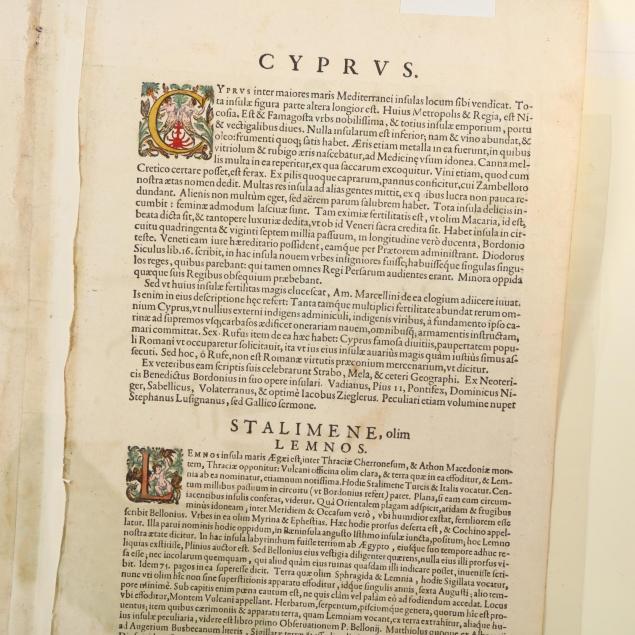 CYPRVS.
CYPRVS inter maiores maris Mediterranei insulas locum sibi vendicat. To-
ta insulæ figura parte altera longior est. Huius Metropolis & Regia, est Ni-
cosia. Est & Famagosta vrbs nobilissima, & totius insulæ emporium, portu
& vectigalibus diues. Nulla insularum est inferior; nam & vino abundat, &
oleo: frumenti quoq; satis habet. Æris etiam metalla in ea fuerunt, in quibus
vitriolum & rubigo æris nascebatur, ad Medicinę vsum idonea. Canna mel-
lis multa in ea reperitur, ex qua saccarum excoquitur. Vini etiam, quod cum
Cretico certare posset, est ferax. Ex pilis quoque caprarum, pannus conficitur, cui Zambelloto
nostra ætas nomen dedit. Multas res insula ad alias gentes mittit, ex quibus lucra non pauca re-
dundant. Alienis non multùm eget, sed aërem parum salubrem habet. Tota insula deliciis in-
cumbit: feminæ admodum lasciuæ sunt. Tam eximiæ fertilitatis est, vt olim Macaria, id est,
beata dicta sit, & tantopere luxuriæ dedita, vt ob id Veneri sacra credita sit. Habet insula in cir-
cuitu quadringenta & viginti septem millia passuum, in longitudine verò ducenta, Bordonio
teste. Veneti eam iure hæreditario possident, eamque per Prætorem administrant. Diodorus
Siculus lib. 16. scribit, in hac insula nouem vrbes insigniores fuisse, habuisseque singulas singu-
los reges, quibus parebant: qui tamen omnes Regi Persarum audientes erant. Minora oppida
quæque suis Regibus obsequium præbebant.
Sed vt huius insulæ fertilitas magis clucescat, Am. Marcellini de ea elogium adiicere iuuat.
Is enim in eius descriptione hęc refert: Tanta tamque multiplici fertilitate abundat rerum om-
nium Cyprus, vt nullius externi indigens adminiculi, indigenis viribus, à fundamento ipso ca-
rinæ ad supremos vsq; carbasos ædificet onerariam nauem, omnibusq; armamentis instructam,
mari committat. Sex. Rufus item de ea hæc habet: Cyprus famosa diuitiis, paupertatem popu-
li Romani vt occuparetur solicitauit, ita vt ius eius insulæ auarius magis quàm iustiùs simus as-
secuti. Sed hoc, ô Rufe, non est Romanæ virtutis præconium mercenarium, vt dicitur.
Ex veteribus eam scriptis suis celebrarunt Strabo, Mela, & ceteri Geographi. Ex Neoteri-
cis Benedictus Bordonius in suo opere insulari. Vadianus, Pius 11, Pontifex, Dominicus Ni-
ger, Sabellicus, Volaterranus, & optimè Iacobus Zieglerus. Peculiari etiam volumine nuper
Stephanus Lusignanus, sed Gallico sermone.
STALIMENE, olim
LEMNOS.
LEMNOS insula maris Ægęi est, inter Thraciæ Cherronesum, & Athon Macedoniæ mon-
tem, Thraciæ opponitur: Vulcani officina olim clara, & terra quæ in ea effoditur, & Lem-
nia ab ea nominatur, etiamnum notissima. Hodie Stalimene Turcis & Italis vocatur. Cen-
tum millibus passuum in circuitu (vt Bordonius refert) patet. Plana, si eam cum circum-
iacentibus insulis conferas, videtur. Quà Orientalem plagam adspicit, aridam & frugibus
minùs idoneam, inter Meridiem & Occasum verò, vbi humidior exstat, fertiliorem esse
scribit Bellonius. Vrbes in ea olim Myrina & Ephestias. Hæc hodie prorsus deserta est, & Cochino appel-
latur. Illa parui nominis hodie oppidum, in Pæninsula angusto Isthmo insulæ iuncta, positum, hoc Lemno
nostra ætate dicitur. In hac insula labyrinthum fuisse tertium ab Ægypto, eiusque suo tempore adhuc re-
liquias exstitisse, Plinius auctor est. Sed Bellonius eius vestigia diligenter quærens, nulla eius illi prorsus vi-
sa esse, nec incolarum quemquam, qui aliud quàm eius ruinas quasdam illi indicare posset, inuenisse scri-
bit. Idem 75. pagos in ea superesse dicit. Terra quæ olim Sphragida & Lemnia, hodie Sigillata vocatur,
nunc vti olim hîc non sine superstitionis apparatu effoditur, idque singulis annis, sexta Augusti; alio tem-
pore minimè. Sub capitis enim pœna cautum est, ne quis clàm vel palàm eò ad fodiendum accedat. Locus
vbi effoditur, Montem Vulcani appellant. Herbarum, serpentum, pisciumque genera, quorum hîc est pro-
uentus; item quibus cærimoniis & apparatu terra, quam Lemniam vocant, ex ea extrahitur, aliaque hu-
ius insulæ peculiaria, videre est libro primo Obseruationum P. Bellonij. Matthiolus quoque
ad Augerium Busbecanum literis, Sigillatæ terræ